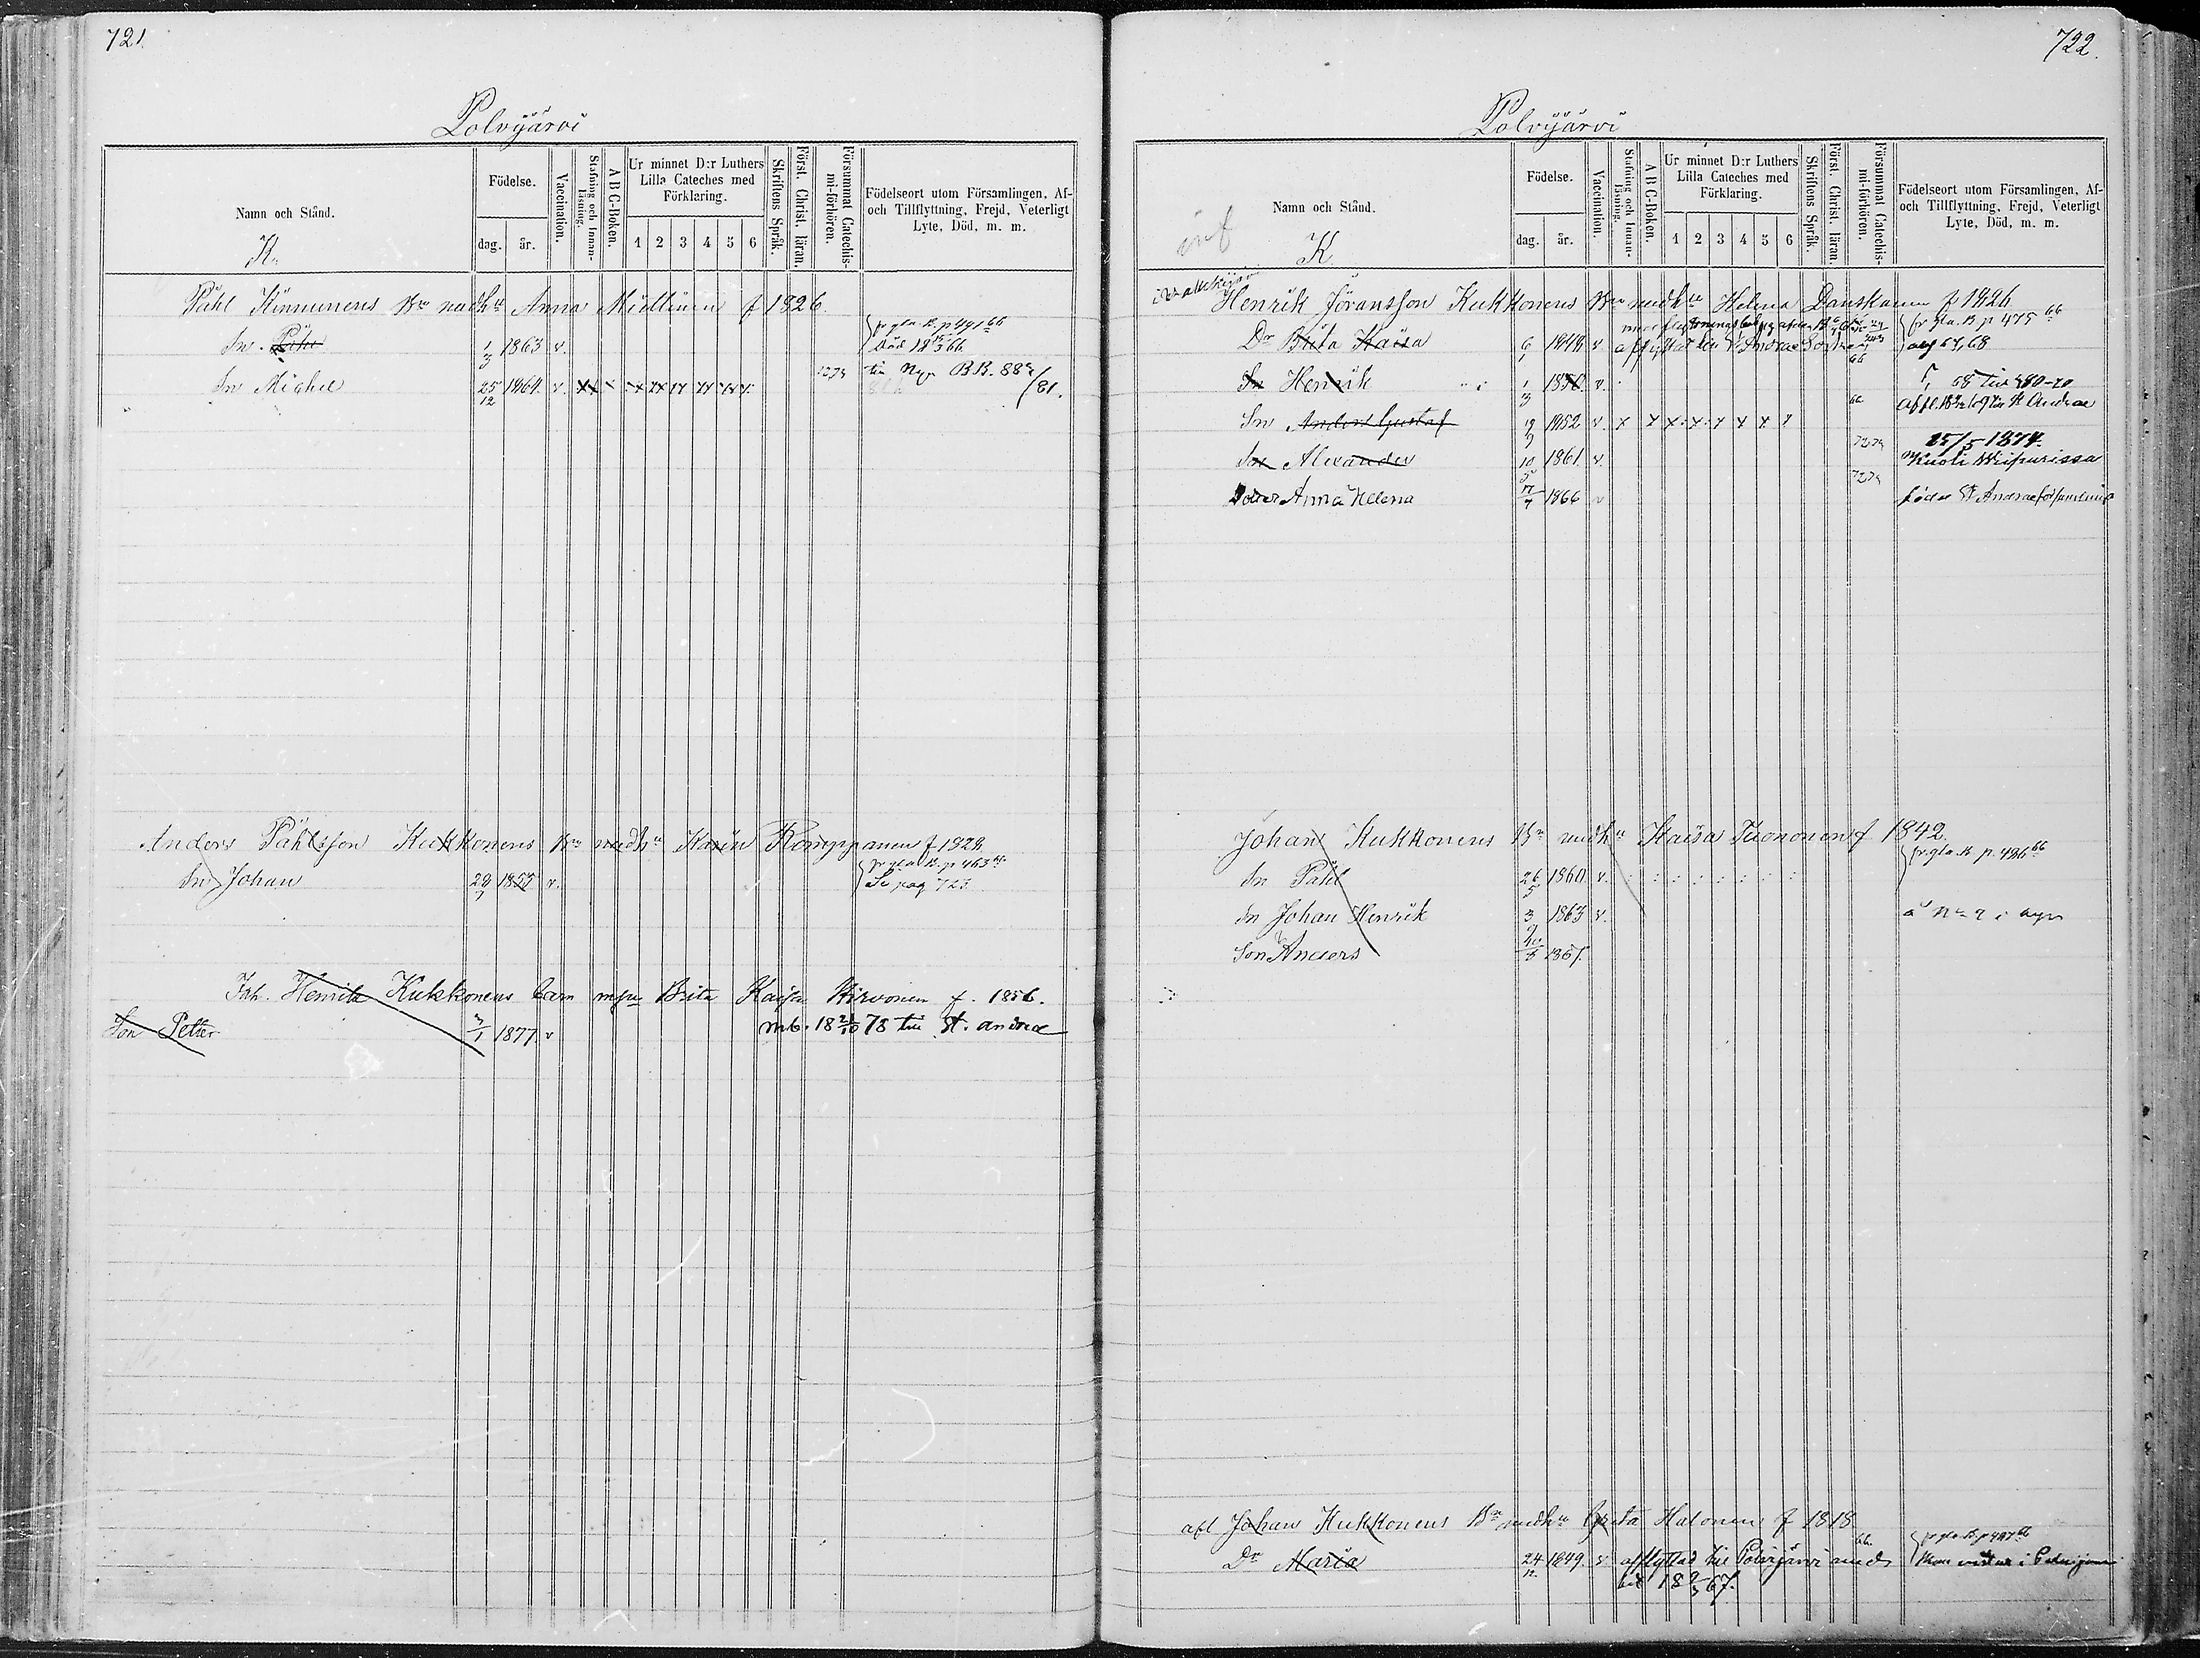 721.
Polvijärvi
Namn och Stånd.
K.
Födelse.
dag. år.
Vaccination.
Stafning och Innan-läsning.
A B C-Boken.
Ur minnet D:r Luthers Lilla Cateches med Förklaring.
1 2 3 4 5 6
Skriftens Språk.
Först. Christ. läran.
Försummat Catechis-mi-förhören.
Födelseort utom Församlingen, Af- och Tillflyttning, Frejd, Veterligt Lyte, Död, m. m.
Påhl Kinnunens Bn medhu Anna Miettinen f 1826
fr gla. B. p 491 66
Sn. Påhl 1/3 1863 v. död
Sn Michel 25/12 1864. v. 72 73 till Nya BB. 882 /81.
Anders Påhlsson Kukkonens Bn medhu Karin Romppanen f 1828
fr gla B. p 463
Sn Johan 28/7 1855 v. Se pag 723
Joh. Henrik Kukkonens barn m Brita Kajsa Hirvonen f. 1856.
Son Petter 3/1 1877. v mb. 18 2/10 78 till St. Andreæ
722.
Polvijärvi
Namn och Stånd.
K
Födelse.
dag. år.
Vaccination.
Stafning och Innan-läsning.
A B C-Boken.
Ur minnet D:r Luthers Lilla Cateches med Förklaring.
1 2 3 4 5 6
Skriftens Språk.
Först. Christ. läran.
Försummat Catechis-mi-förhören.
Födelseort utom Församlingen, Af- och Tillflyttning, Frejd, Veterligt Lyte, Död, m. m.
Henrik Jöransson Kukkonens Bn medhu Helena Danskanen f 1826
fr gla. B p 475 66
Dr Brita Kaisa 6/1 1848 v afflyttat till St Andreæ 67, 68
Sn Henrik 1/3 1850. v.
Sn Anders Gustaf 19/9 1852 v. x x x x x x x
Sn Alexander 10/5 1861. v. 72 73 25/5 1874.
Kuoli Wiipurissa
Dotter Anna Helena 17/7 1866 v 72 73 född St Andreæ församling
Johan Kukkonens Bn medhu Kaisa Tuononen f 1842.
fr gla. B p. 486 66
Sn Påhl 26/5 1860. v.
Sn Johan Henrik 3/9 1863 v.
Son Anders 1867.
afl Johan Kukkonens Bn medhu Greta Halonen f 1818
Dr Maria 24/12 1849. v afflyttad till Polvijärvi med
bet 67.